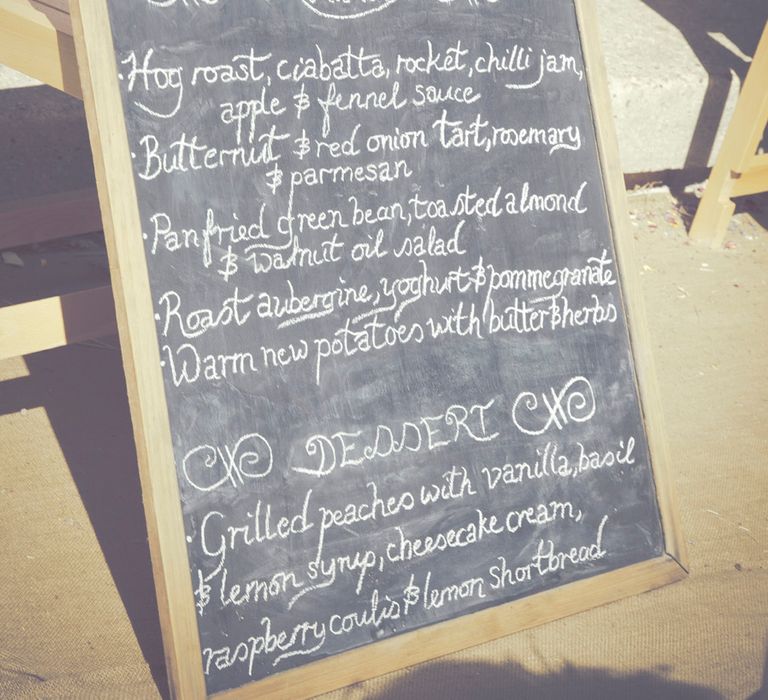 · Hog roast, ciabatta, rocket, chilli jam,
apple & fennel sauce
· Butternut & red onion tart, rosemary
& parmesan
· Pan fried green bean, toasted almond
& walnut oil salad
· Roast aubergine, yoghurt & pommegranate
· Warm new potatoes with butter & herbs
DESSERT
· Grilled peaches with vanilla, basil
& lemon syrup, cheesecake cream,
raspberry coulis & lemon shortbread